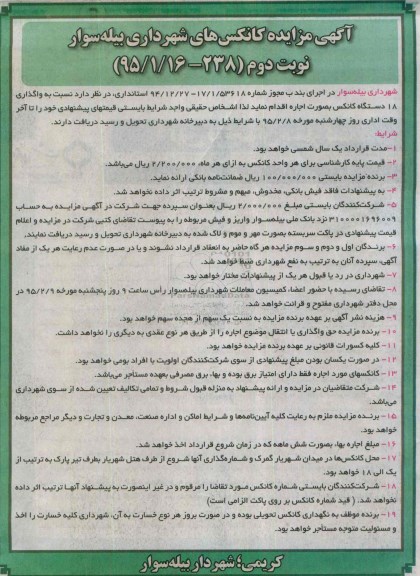 آگهی مزایده کانکس های شهرداری بیله سوار
نوبت دوم (۲۳۸-۹۵/۱/۱۶)
شهرداری بیله‌سوار در اجرای بند ب مجوز شماره ۱۷/۱/۵۳۶۱۸-۹۴/۱۲/۲۷ استانداری، در نظر دارد نسبت به واگذاری
۱۸ دستگاه کانکس بصورت اجاره اقدام نماید لذا اشخاص حقیقی واجد شرایط بایستی قیمتهای پیشنهادی خود را تا آخر
وقت اداری روز چهارشنبه مورخه ۹۵/۲/۸ با شرایط ذیل به دبیرخانه شهرداری تحویل و رسید دریافت دارند.
شرایط:
۱- مدت قرارداد یک سال شمسی خواهد بود.
۲- قیمت پایه کارشناسی برای هر واحد کانکس به ازای هر ماه، ۲/۲۰۰/۰۰۰ ریال می‌باشد.
۳- برنده مزایده بایستی ۱۰۰/۰۰۰/۰۰۰ ریال ضمانت‌نامه بانکی ارائه نماید.
۴- به پیشنهادات فاقد فیش بانکی، مخدوش، مبهم و مشروط ترتیب اثر داده نخواهد شد.
۵- شرکت‌کنندگان بایستی مبلغ ۲/۰۰۰/۰۰۰ ریال بعنوان سپرده جهت شرکت در آگهی مزایده به حساب
۳۱۰۰۰۰۱۶۹۶۰۰۹ نزد بانک ملی بیله‌سوار واریز و فیش مربوطه را به پیوست تقاضای کتبی شرکت در مزایده و اعلام
قیمت پیشنهادی در پاکت سربسته بصورت مهر و موم و لاک شده به دبیرخانه شهرداری تحویل و رسید دریافت نمایند.
۶- برندگان اول و دوم و سوم مزایده هر گاه حاضر به انعقاد قرارداد نشوند و یا در صورت عدم رعایت هر یک از مفاد
آگهی، سپرده آنان به ترتیب به نفع شهرداری ضبط خواهد شد.
۷- شهرداری در رد یا قبول هر یک از پیشنهادات مختار خواهد بود.
۸- تقاضای رسیده با حضور اعضاء کمیسیون معاملات شهرداری بیله‌سوار رأس ساعت ۹ روز پنجشنبه مورخه ۹۵/۲/۹ در
محل دفتر شهرداری مفتوح و قرائت خواهد شد.
۹- هزینه نشر آگهی بر عهده برنده مزایده به نسبت یک سهم از هجده سهم خواهد بود.
۱۰- برنده مزایده حق واگذاری یا انتقال موضوع اجاره را از طریق هر نوع عقدی به دیگری را نخواهد داشت.
۱۱- کلیه کسورات قانونی بر عهده برنده مزایده خواهد بود.
۱۲- در صورت یکسان بودن مبلغ پیشنهادی از سوی شرکت‌کنندگان اولویت با افراد بومی خواهد بود.
۱۳- کانکسهای مورد اجاره فقط دارای امتیاز برق بوده و بها، برق مصرفی بعهده مستأجر می‌باشد.
۱۴- شرکت متقاضیان در مزایده و ارائه پیشنهاد به منزله قبول شروط و تمامی تکالیف تعیین شده از سوی شهرداری
می‌باشد.
۱۵- برنده مزایده ملزم به رعایت کلیه آیین‌نامه‌ها و شرایط اماکن و اداره صنعت، معدن و تجارت و دیگر مراجع مربوطه
خواهد بود.
۱۶- مبلغ اجاره بها، بصورت شش ماهه که در زمان شروع قرارداد اخذ خواهد شد.
۱۷- محل کانکس‌ها در میدان شهریار گمرک و شماره‌گذاری آنها شروع از طرف هتل شهریار بطرف تیر پارک به ترتیب از
یک الی ۱۸ خواهد بود.
۱۸- شرکت‌کنندگان بایستی شماره کانکس مورد تقاضا را مرقوم و در غیر اینصورت به پیشنهاد آنها ترتیب اثر داده
نخواهد شد. ( قید شماره کانکس بر روی پاکت الزامی است)
۱۹- برنده موظف به نگهداری کانکس تحویلی بوده و در صورت بروز هر نوع خسارت به آن، شهرداری کلیه خسارت را اخذ
و مسئولیت متوجه مستأجر خواهد بود.
کریمی؛ شهردار بیله سوار